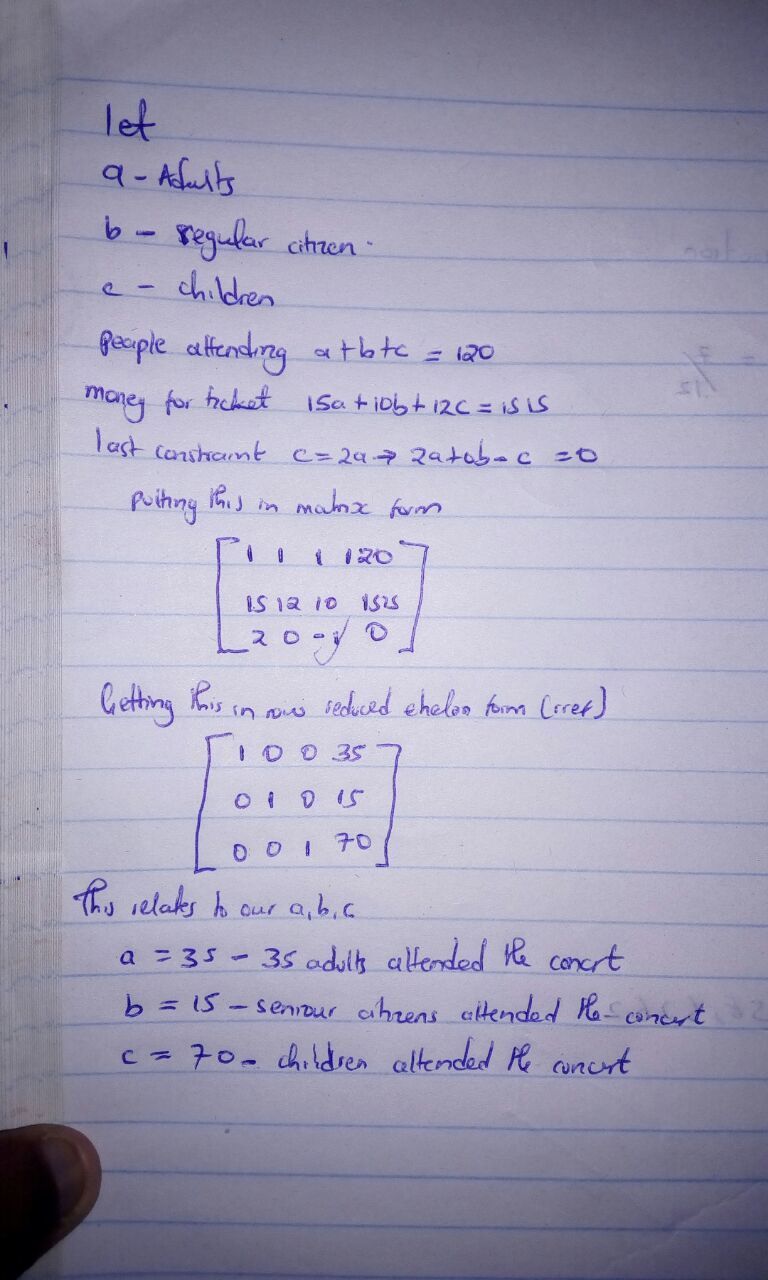 let
a - Adults
b - regular citizen.
c - children
people attending a+b+c = 120
money for ticket 15a+10b+12c = 1515
last constraint c=2a → 2a+0b-c =0
putting this in matrix form
1 1 1 120
15 12 10 1525
2 0 -1 0
Getting this in row reduced echelon form (rref)
1 0 0 35
0 1 0 15
0 0 1 70
This relates to our a,b,c
a = 35 - 35 adults attended the concert
b = 15 - seniour citizens attended the concert
c = 70 - children attended the concert